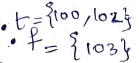 • t = {100, 102}
• f = {103}